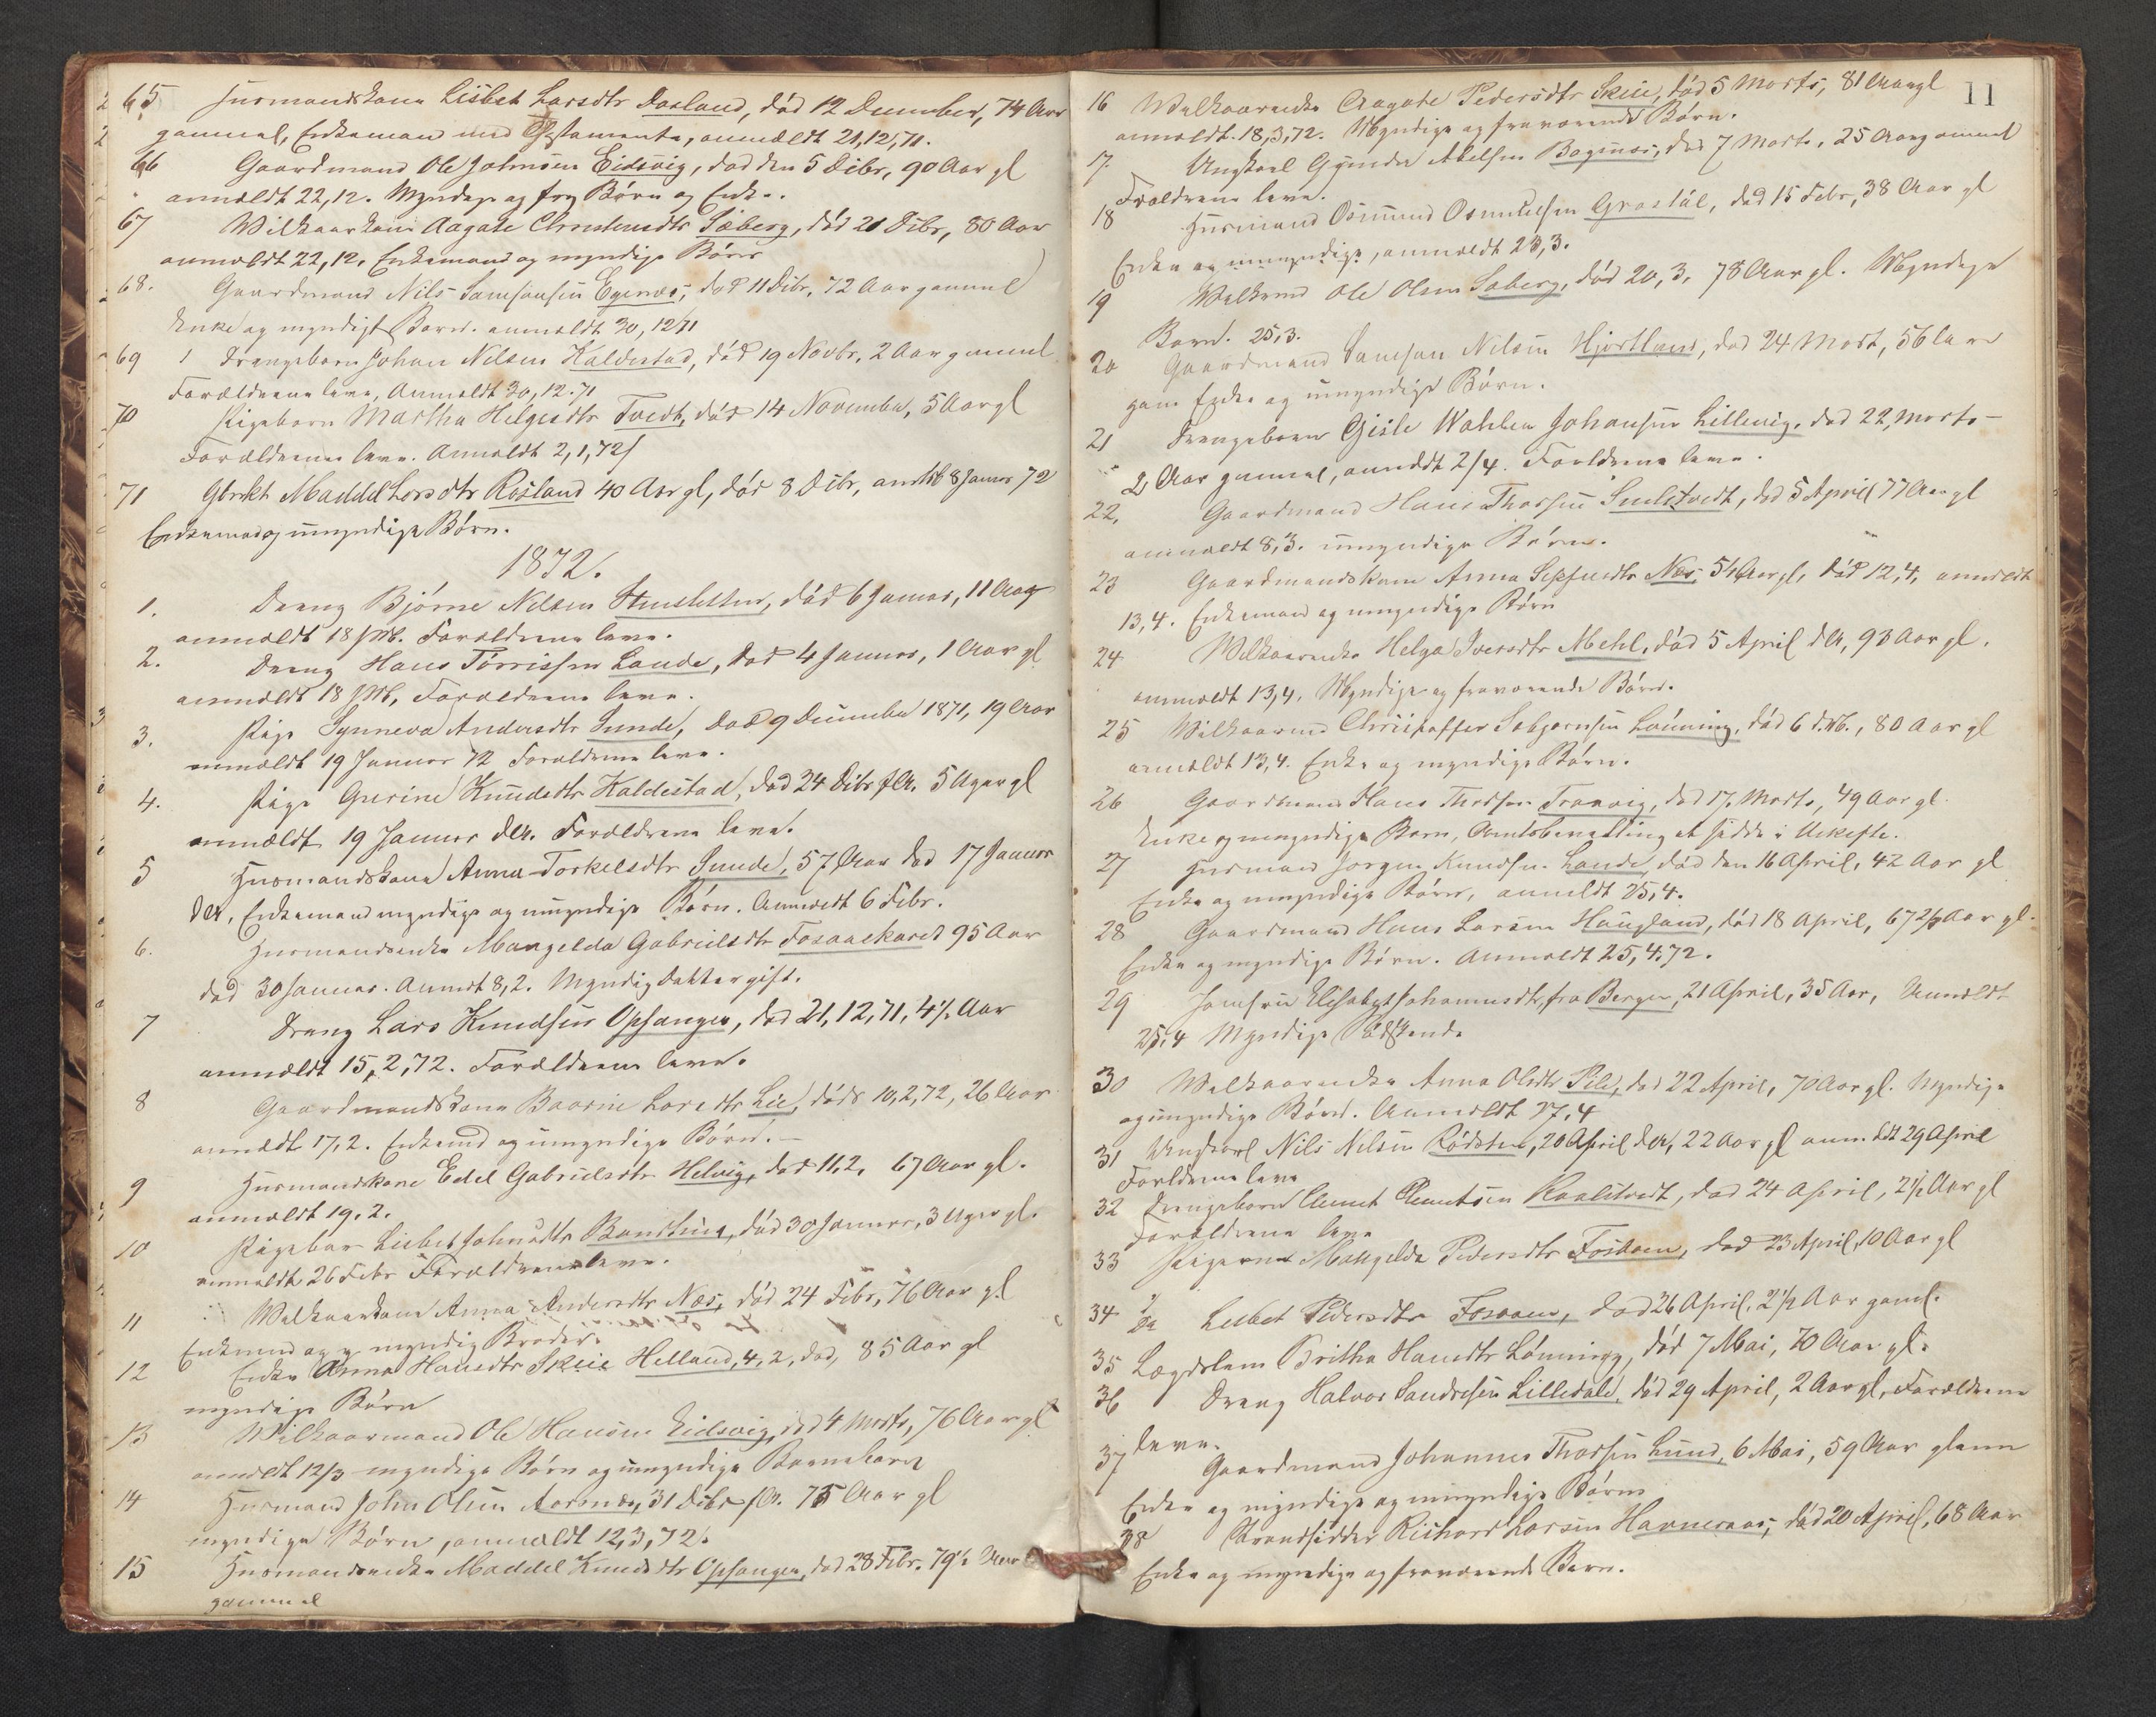 65 Husmandskone Lisbet Larsdtr Dasland, død 12 December, 74 Aar
gammel, Enkemand med Testamente, anmeldt 21,12,71.
66 Gaardmand Ole Johnsen Eidsvig, død den 5 Decbr, 90 Aar gl
anmeldt 22,12. Myndige og Børn og Enke.
67 Wilkaarkone Aagate Christensdtr Sæberg, død 21 Decbr, 80 Aar
anmeldt 22,12. Enkemand og myndige Børn
68. Gaardmand Nils Samsonsen Egenæs, død 11 Decbr, 72 Aar gammel
Enke og myndigt Barn. anmeldt 30,12 71
69 Drengebarn Johan Nilsen Kaldestad, død 19 Novbr, 2 Aar gammel
Forældrene leve, Anmeldt 30,12.71
70 Pigebarn Martha Helgesdtr Tvedt, død 14 November, 5 Aar gl
Forældrene leve. Anmeldt 2,1,72
71 Maddel Larsdtr Røsland 40 Aar gl, død 8 Decbr, anmldt 8 Januar 72
Enkemand og umyndige Børn.
1872.
1. Dreng Bjørne Nilsen, død 6 Januar, 11 Aar
anmeldt 18 . Forældrene leve.
2. Dreng Hans Tørrissen Lande, død 4 Januar, 1 Aar gl
anmeldt 18 , Forældrene leve.
3. Pige Synneva Andersdtr Sunde, død 9 December 1871, 19 Aar
anmeldt 19 Januar 72 Forældrene leve.
4. Pige Gurine Knudsdtr Kaldestad, død 24 Decbr f.A. 5 Uger gl
anmeldt 19 Januar d.A. Forældrene leve.
5 Husmandskone Anna Torkelsdtr Sunde, 57 Aar død 17 Januar
d.A, Enkemand myndige og umyndige Børn. Anmeldt 6 Febr.
6. Husmandsenke Mangelda Gabrielsdtr Fosaaskaret 95 Aar
død 30 Januar. Anmeldt 8,2. Myndig Datter gift.
7 Dreng Lars Knudsen Opsanger, død 21,12,71, 4½ Aar
anmeldt 15,2,72. Forældrene leve.
8 Gaardmandskone Baarine Larsdtr Lie, død 10,2,72, 26 Aar
anmeldt 17,2. Enkemd og umyndige Børn.
9 Husmandskone Edel Gabrielsdtr Helvig, død 11,2, 67 Aar gl.
anmeldt 19,2.
10 Pigebarn Lisbet Johnsdtr, død 30 Januar, 3 Uger gl.
anmeldt 26 Febr Forældrene leve.
11 Wilkaarkone Anna Andersdtr Næs, død 24 Febr, 76 Aar gl
Enkemd og myndig Broder.
12 Enke Anna Hansdtr Skeie Helland, 4,2, død, 85 Aar gl
myndige Børn
13 Wilkaarmand Ole Hansen Eidsvig, død 4 Marts, 76 Aar gl
anmeldt 12/3 myndige Børn og umyndige Børnebørn
14 Husmand John Olsen Aarsnæs, 31 Decbr f.A. 75 Aar gl
myndige Børn, anmeldt 12,3,72.
15 Husmandsenke Maddel Knudsdtr Opsanger, død 28 Febr, 79½ Aar
gammel
11
16 Wilkaarenke Aagate Pedersdtr Skeie, død 5 Marts, 81 Aar gl
anmeldt 18,3,72. Myndige og fraværende Børn.
17. Ungkarl Gunder Abelsen Bogsnæs, død 7 Marts, 25 Aar gammel
Forældrene leve.
18 Husmand Osmund Osmundsen, død 15 Febr, 38 Aar gl
Enke og umyndige, anmeldt 23,3.
19 Wilkmd Ole Olsen Sæberg, død 20,3, 78 Aar gl. Myndige
Børn. 25,3.
20 Gaardmand Samson Nilsen Hjortland, død 24 Marts, 56 Aar
gam Enke og umyndige Børn.
21 Drengebarn Gisle Wahlen Johansen Lillevig, død 22, Marts
2 Aar gammel, anmeldt 2/4. Forældrene leve.
22. Gaardmand Hans Thorsen, død 5 April 77 Aar gl
anmeldt 8,3. umyndige Børn.
23 Gaardmandskone Anna Næs, 54 Aar gl, død 12,4, anmeldt
13,4. Enkemand og umyndige Børn
24 Wilkaarenke Helga Iversdtr Mehl, død 5 April d.A, 93 Aar gl.
anmeldt 13,4. Myndige og fraværende Børn.
25 Wilkaarmd Christoffer Lønning, død 6 , 80 Aar gl
anmeldt 13,4. Enke og myndige Børn.
26 Gaardmand Hans Thorsen Tranvig, død 17. Marts, 49 Aar gl.
Enke og umyndige Børn, Amtsbevilling at sidde i Uskifte.
27 Husmand Jørgen Knudsen Lande, død den 16 April, 42 Aar gl
Enke og umyndige Børn, anmeldt 25,4.
28 Gaardmand Hans Larsen Haugland, død 18 April, 67 2/3 Aar gl.
Enke og myndige Børn. Anmeldt 25,4,72.
29 Jomfru Elisabet Johannesdtr, fra Bergen, 21 April, 35 Aar, Anmeldt
25,4 Myndige Sødskende
30 Wilkaarenke Anna Olsdtr, død 22 April, 70 Aar gl. Myndige
og umyndige Børn. Anmeldt 27,4
31 Ungkarl Nils Nilsen Rødsten, 20 April d.A, 22 Aar gl anmeldt 29 April
Forældrene leve
32 Drengebarn Clemet Clemetsen, død 24 April, 2½ Aar gl
Forældrene leve
33 Pigebarn Mangelda Pedersdtr Fosaaen, død 23 April, 10 Aar gl
34 Do Lisbet Pedersdtr Fosaaen, død 26 April, 2½ Aar gaml.
35 Lægdslem Britha Hansdtr Lønning, død 7 Mai, 70 Aar gl.
36 Dreng Halvor Sandersen Lilledale, død 29 April, 2 Aar gl, Forældrene
leve.
37 Gaardmand Johannes Thorsen Lund, 6 Mai, 59 Aar gl
Enke og myndige og umyndige Børn
38 Strandsidder Richard Larsen Havneraas, død 20 April, 68 Aar
Enke og myndige og fraværende Børn.